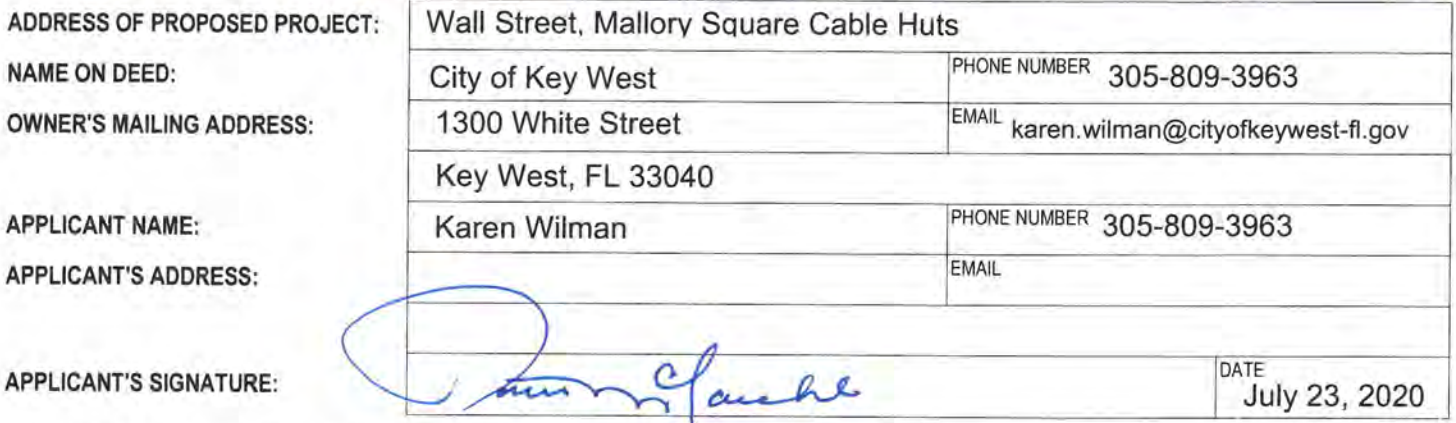 ADDRESS OF PROPOSED PROJECT: Wall Street, Mallory Square Cable Huts
NAME ON DEED: City of Key West PHONE NUMBER 305-809-3963
OWNER'S MAILING ADDRESS: 1300 White Street EMAIL karen.wilman@cityofkeywest-fl.gov
Key West, FL 33040
APPLICANT NAME: Karen Wilman PHONE NUMBER 305-809-3963
APPLICANT'S ADDRESS: EMAIL
APPLICANT'S SIGNATURE: DATE July 23, 2020